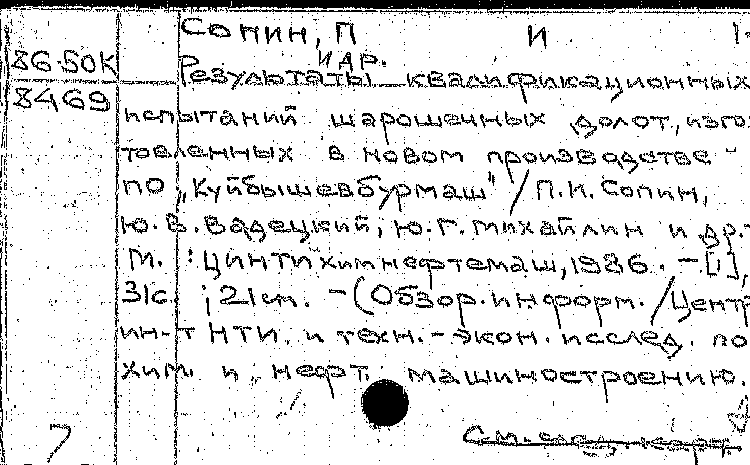 Сопин, П И
И ДР.
86-50К Результаты квалификационных
8469
испытаний шарошечных долот, изго-
товленных в новом производстве
ПО „Куйбышевбурмаш" / П.И. Сопин,
Ю.В. Вадецкий, Ю.Г. Михайлин и др.-
М. : ЦИНТИхимнефтемаш, 1986. - [1],
31с. ; 21см. - (Обзор. информ. / Центр.
ин-т НТИ и техн.-экон. исслед. по
хим. и нефт. машиностроению.
7 См. след. карт